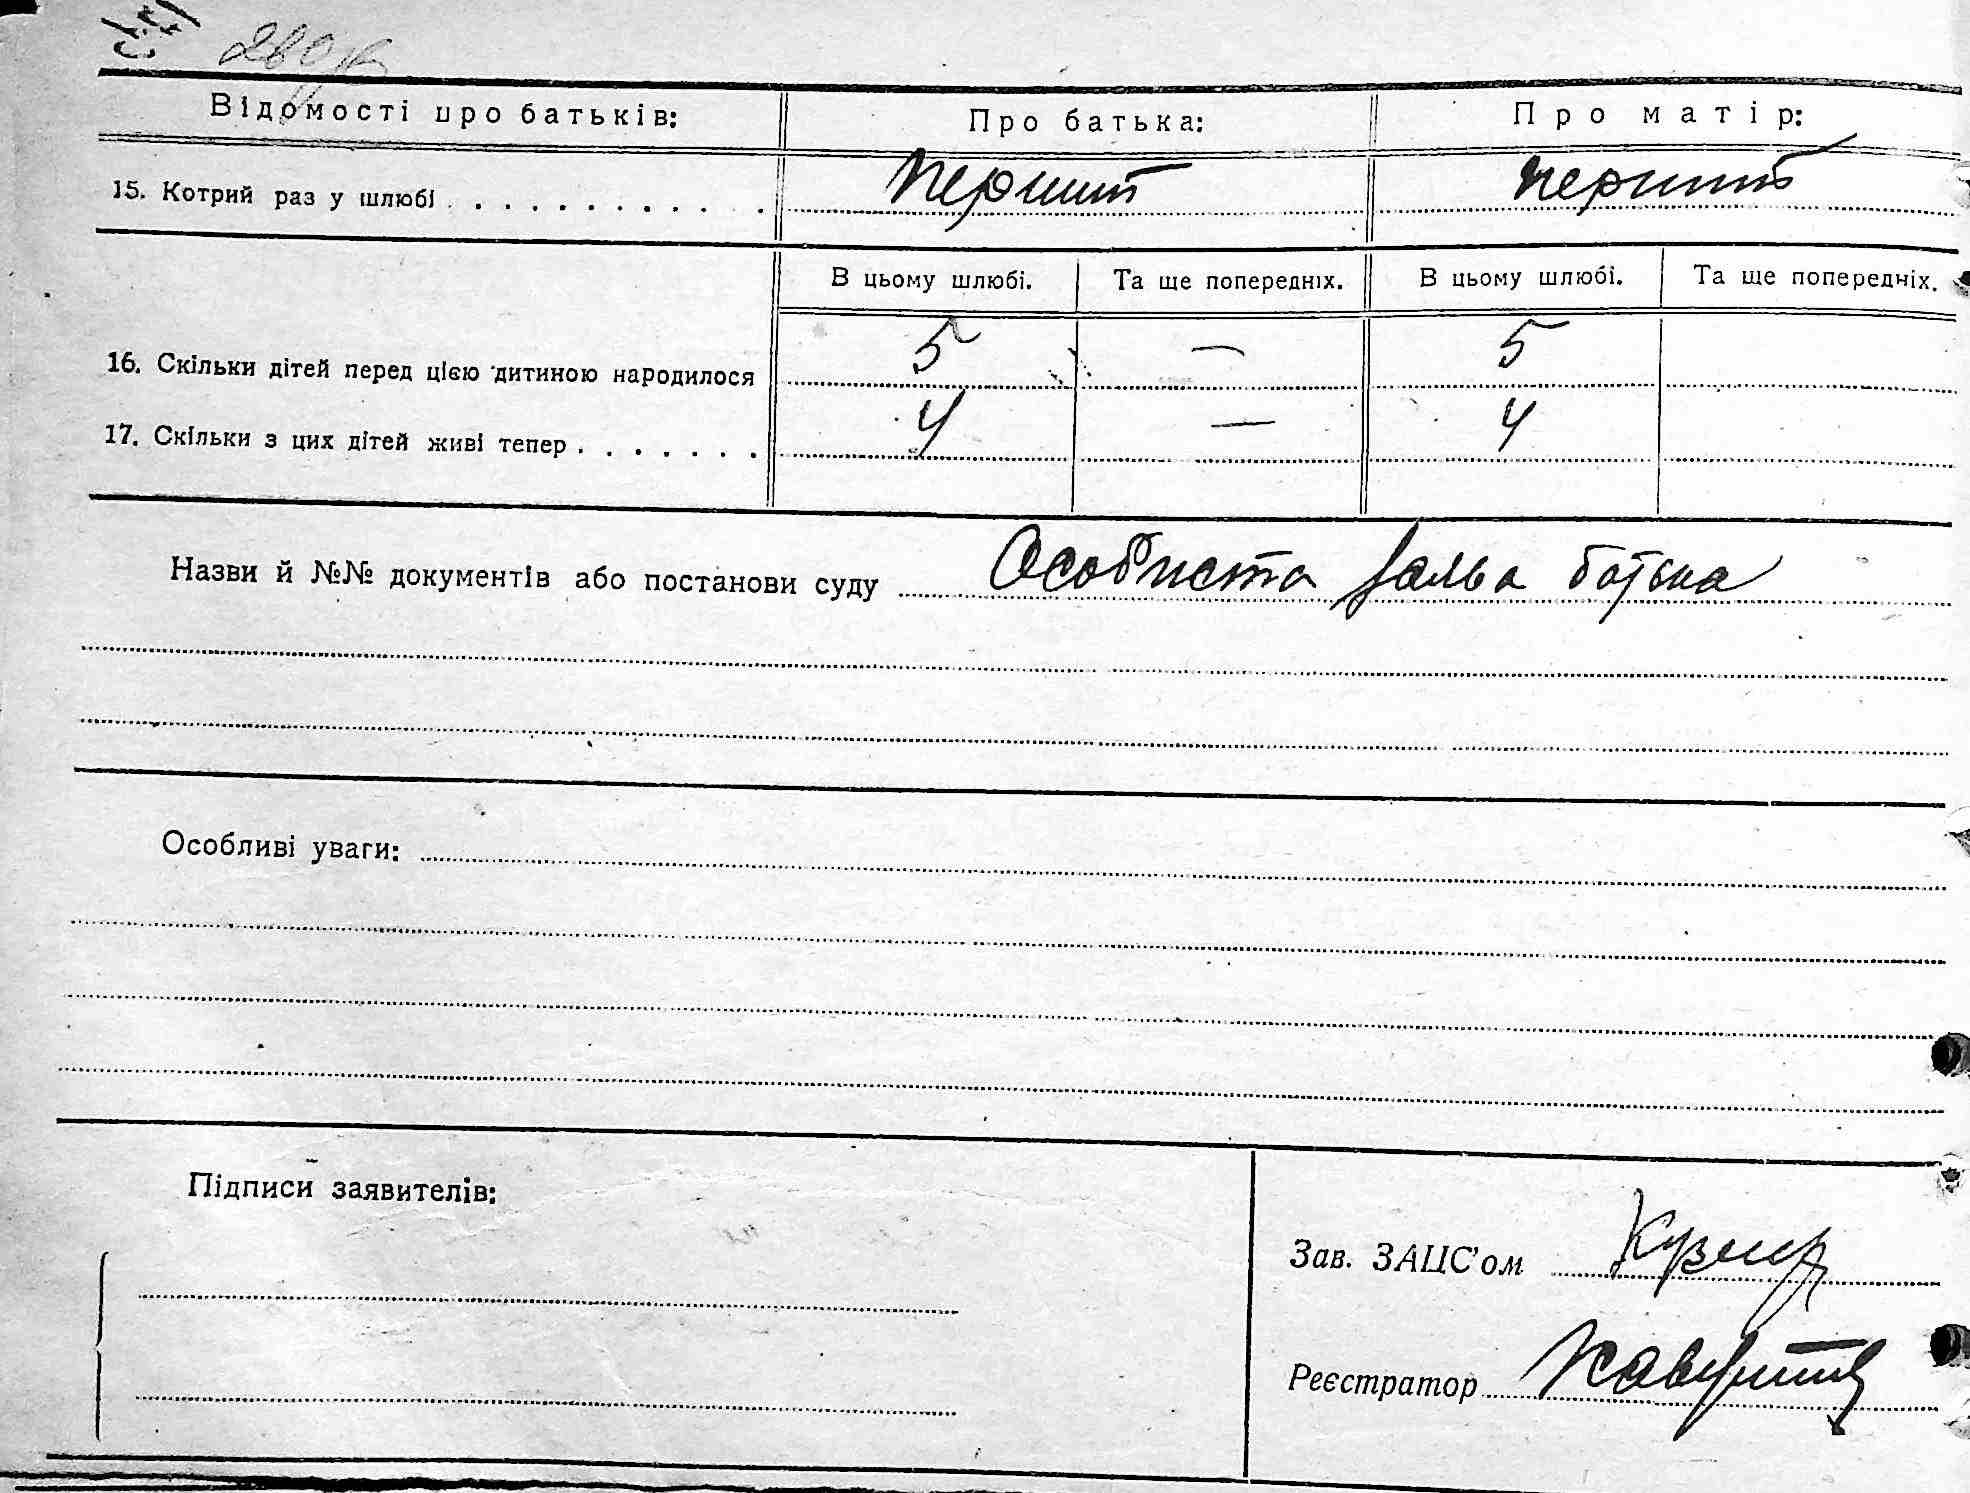 Відомості про батьків: Про батька: Про матір:
15. Котрий раз у шлюбі . . . . . . . . . . . . перший перший
В цьому шлюбі. Та ще попередніх. В цьому шлюбі. Та ще попередніх.
16. Скільки дітей перед цією дитиною народилося 5 — 5
17. Скільки з цих дітей живі тепер . . . . . . . 4 — 4
Назви й №№ документів або постанови суду Особиста заява батька
Особливі уваги:
Підписи заявителів:
Зав. ЗАЦС'ом
Реєстратор